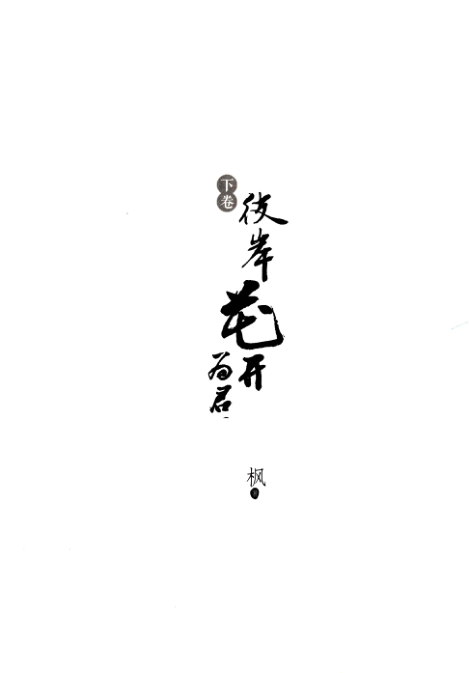 下卷
彼岸花开
为君
枫